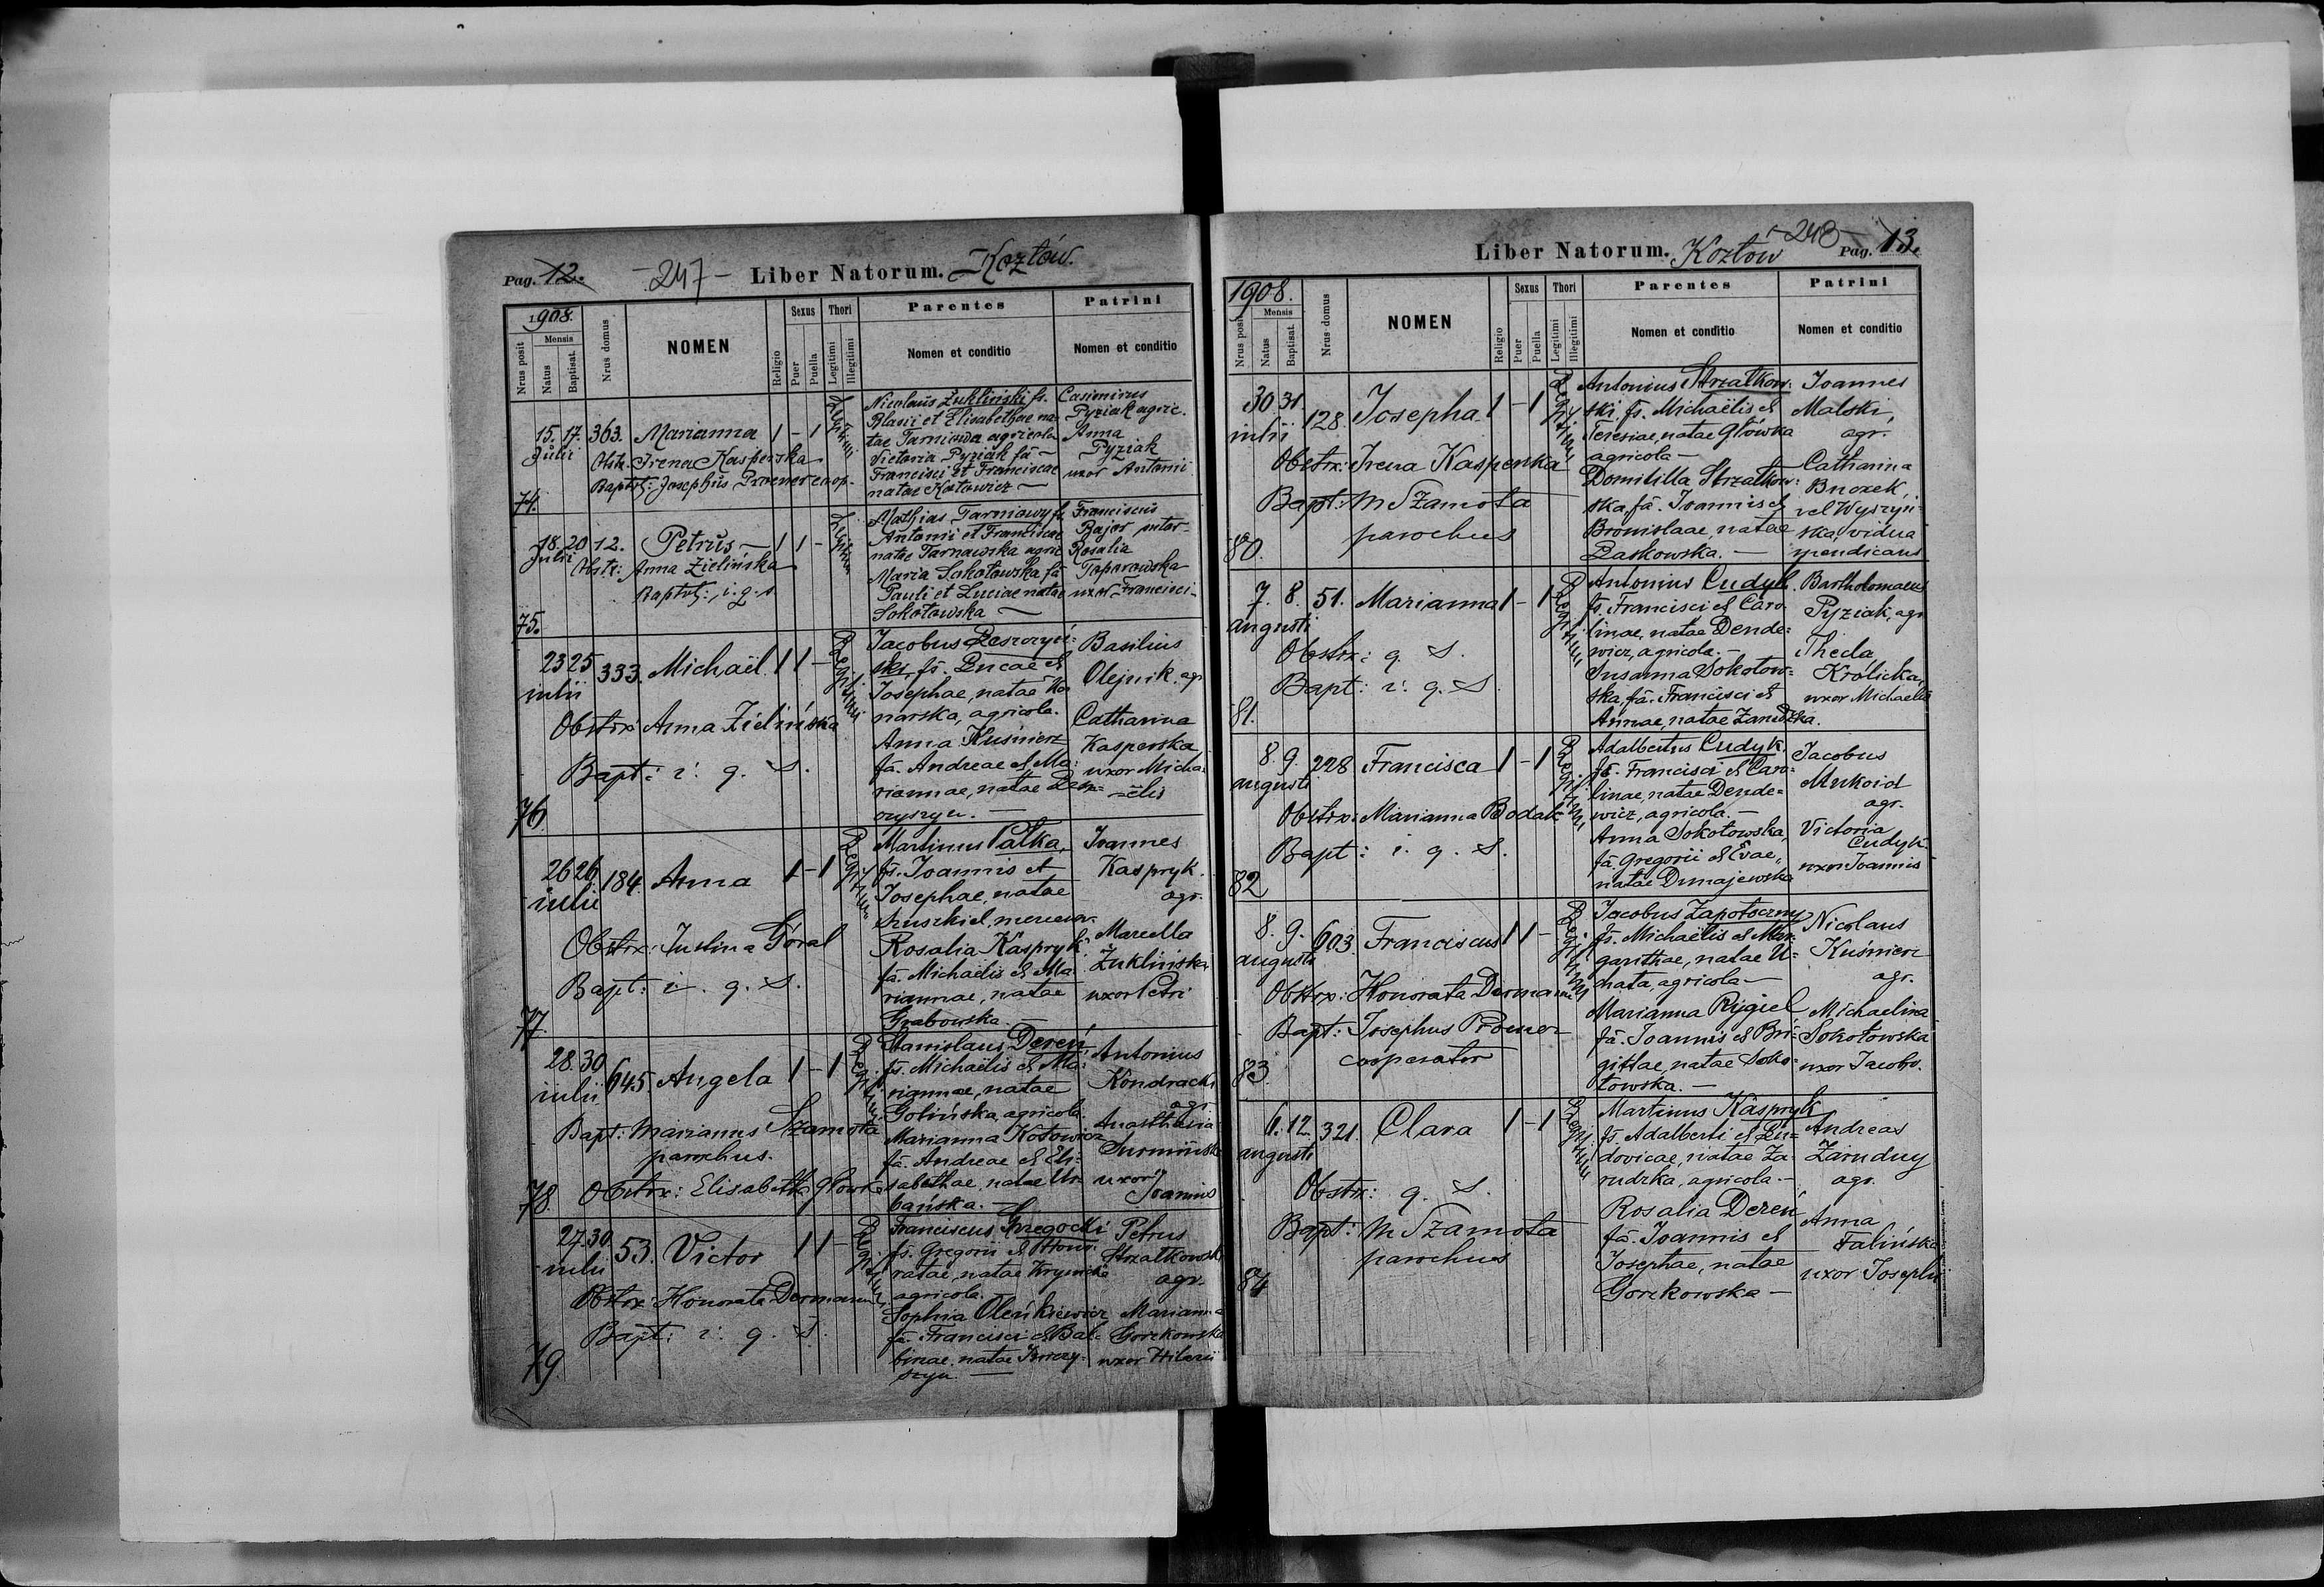 Pag. 12. -247- Liber Natorum. Kozłów.
1908.
Nrus posit
Mensis
Natus
Baptisat.
Nrus domus
NOMEN
Religio
Sexus
Puer
Puella
Thori
Legitimi
Illegitimi
Parentes
Nomen et conditio
Patrini
Nomen et conditio
15. 17. 363. Marianna 1 - 1 Legitimi
Julii Obstr. Irena Kasperska
Baptist: Josephus Proener coop.
74.
Nicolaus Żukliński fs.
Blasii et Elisabethae na-
tae Tarniowa agricola
Victoria Pyziak fa -
Francisci et Franciscae
natae Kotowicz -
Casimirus
Pyziak agric.
Anna
Pyziak
uxor Antonii
18. 20 12. Petrus - 1 1 - Legitimi
Julii Obstr: Anna Zielińska
Baptist: i. q. s.
75.
Mathias Tarniowy fs
Antonii et Franciscae
natae Tarnawska agric
Maria Sokołowska fa
Pauli et Luciae natae
Sokołowska -
Franciscus
Bajor
Rosalia
Toporowska
uxor Francisci-
23 25 333. Michaël. 1 1 - Legitimi
iulii
Obstrix Anna Zielińska
Bapt: i. q. S.
76
Jacobus Leszczyń=
ski, fs. Lucae et
Josephae, natae Ko
narska, agricola.
Anna Kuśnierz
fa. Andreae et Ma=
riannae, natae
-
Basilius
Olejnik, agr
Catharina
Kasperska,
uxor Micha=
=ëlis
26 26 184. Anna 1 - 1 Legitimi
iulii
Obstrx: Justina Góral
Bapt: i. q. S.
77.
Martinus Pałka,
fs. Joannis et
Josephae, natae
Rosalia Kaspryk
fa. Michaëlis et Ma
riannae, natae
Grabowska. -
Joannes
Kaspryk.
agr.
Marcella
Żuklińska
uxor Petri
28. 30 645. Angela 1 - 1 Legitimi
iulii
Bapt: Marianus Szamota
parochus.
78. Obstrx: Elisabetha Główka
Stanislaus Dereń
fs. Michaëlis et Ma=
riannae, natae
Golińska, agricola.
Marianna Kotowicz
fa. Andreae et Eli=
sabethae, natae Ur-
bańska. -
Antonius
Kondracki
agr.
Anasthasia
uxor
Joannis
27. 30. 53. Victor 1 1 - Legitimi
iulii
Obstrx: Honorata Dermann
Bapt: i. q. S.
79
Franciscus Gregocki
fs. Gregorii et Hono
ratae, natae Krynicka
agricola.
Sophia Oleńkiewicz
fa. Francisci et Bal=
binae, natae
szyn -
Petrus
Strzałkowski
agr.
Marianna
Gorzkowska
uxor Hilarii
Liber Natorum. Kozłów -248- Pag. 13.
1908.
Nrus posit
Mensis
Natus
Baptisat.
Nrus domus
NOMEN
Religio
Sexus
Puer
Puella
Thori
Legitimi
Illegitimi
Parentes
Nomen et conditio
Patrini
Nomen et conditio
30 31 128. Josepha 1 - 1 Legitimi
iulii
Obstrx: Irena Kasperska
Bapt: M Szamota
parochus
80.
Antonius Strzałkow=
ski, fs. Michaëlis et
Teresiae, natae Główka
agricola -
Domitilla Strzałkow=
ska, fa. Joannis et
Bronislaae, natae
Laskowska. -
Joannes
Malski,
agr.
Catharina
Bnozek,
vel Wyszyń=
ska, vidua
mendicans
7. 8. 51. Marianna 1 - 1 Legitimi
augusti
Obstrx: q. S.
Bapt: i. q. S.
81.
Antonius Cudyk.
fs. Francisci et Caro
linae, natae Dende=
wicz, agricola. -
Susanna Sokołow=
ska, fa. Francisci et
Annae, natae Zarudzka.
Bartholomaeus
Pyziak, agr
Thecla
Królicka,
uxor Michaelis
8. 9. 228 Francisca 1 - 1 Legitimi
augusti
Obstrx: Marianna Bodak
Bapt: i. q. S.
82
Adalbertus Cudyk
fs. Francisci et Caro=
linae, natae Dende=
wicz, agricola. -
Anna Sokołowska,
fa. Gregorii et Evae,
natae Dunajewska
Jacobus
Mukoid
agr.
Victoria
Cudyk.
uxor Joannis
8. 9. 603. Franciscus 1 1 - Legitimi
augusti
Obstrx: Honorata Dermann
Bapt: Josephus Proener
cooperator
83.
Jacobus Zapotoczny
fs. Michaëlis et Mar
garithae, natae U=
chata, agricola -
Marianna Rygiel
fa. Joannis et Bri=
gittae, natae Soko=
łowska. -
Nicolaus
Kuśnierz
agr.
Michaelina
Sokołowska
uxor Jacobi.
6. 12. 321. Clara 1 - 1 Legitimi
augusti
Obstrx: q. S.
Bapt: M Szamota
parochus
84
Martinus Kaspryk
fs. Adalberti et Lu=
dovicae, natae Za=
rudzka, agricola. -
Rosalia Dereń
fa. Joannis et
Josephae, natae
Gorzkowska -
Andreas
Zarudny
agr.
Anna
Falińska
uxor Josephi